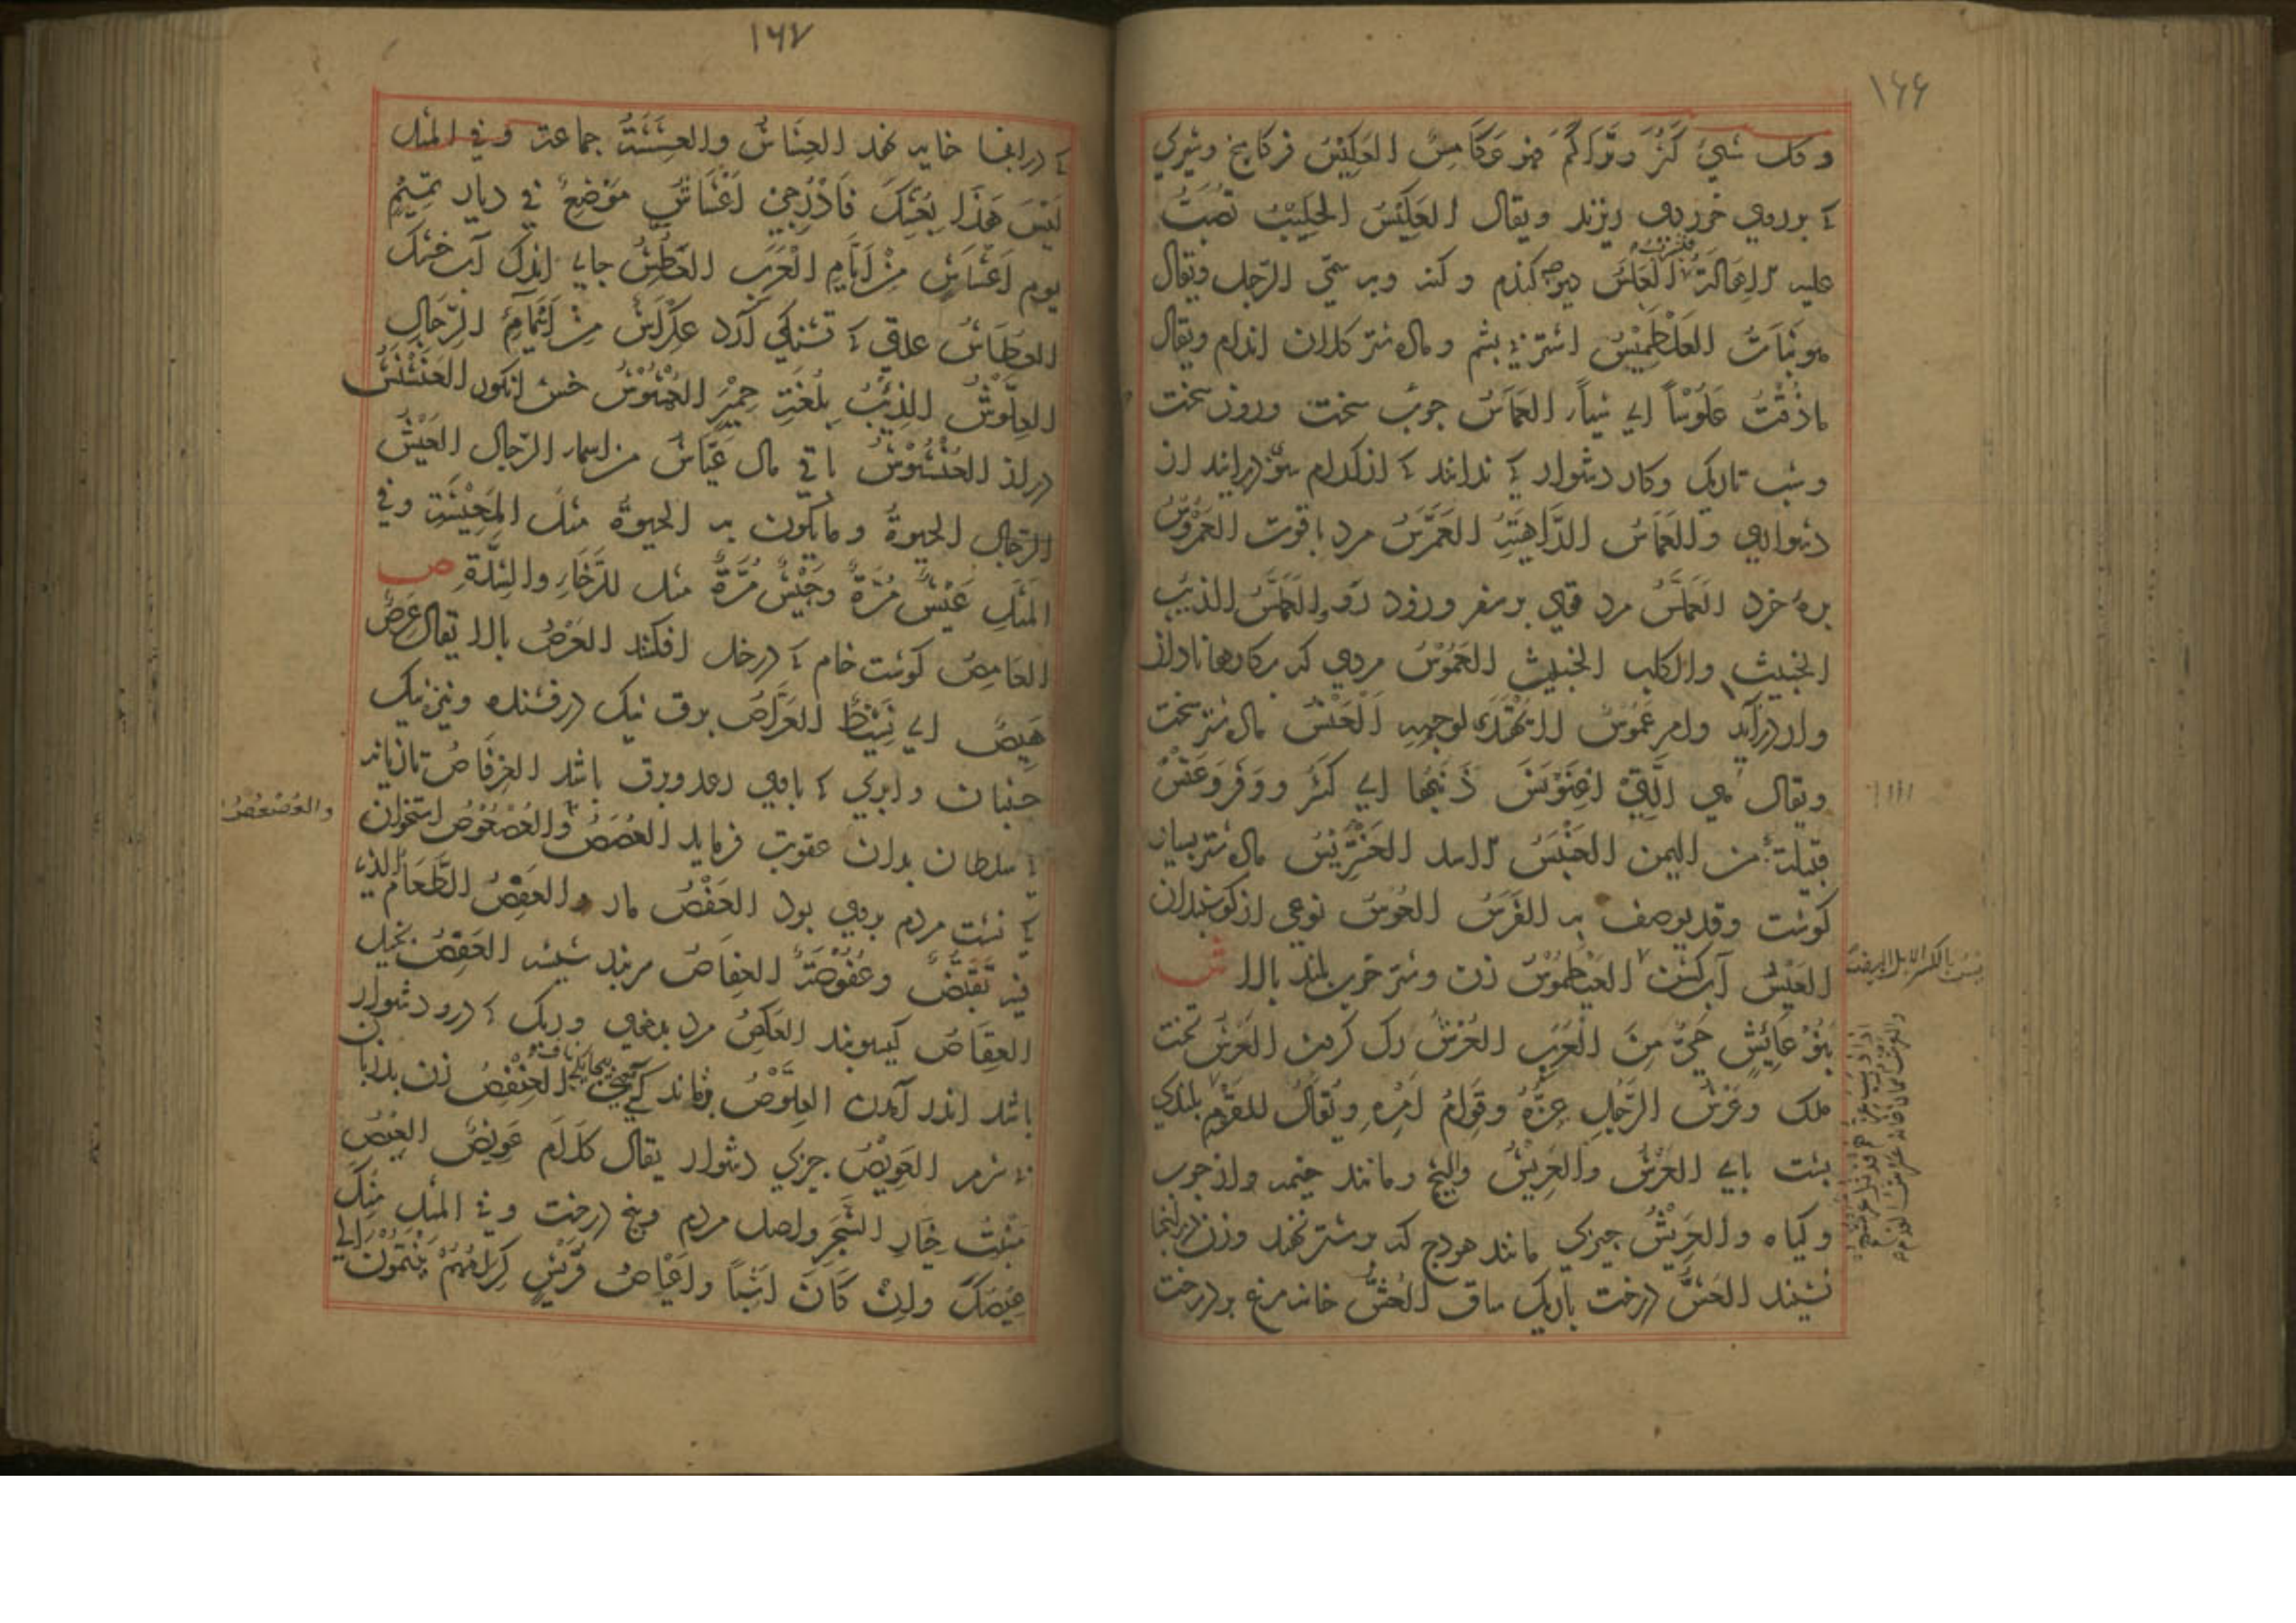 ١٦٦
وكل شيئ كَثُرَ وتَرَاكَمَ فهو عُكَامِسٌ العَكِيْسُ فركاميخ وشيركي
كه بر روي خوردي ريزند ويقال العَكِيْسُ الحَلِيْبُ تُصَبُّ
عليه الاهالة العَلَسُ كندم وكنه وبه سمّي الرّجل ويقال
هو نَبَاتٌ العَلْطَمِيْسُ اشتر بشم وماده شتر كلان اندام ويقال
ماذُقْتُ عَلُوْساً اي شيأ العَمَاسُ حرب سخت وروز سخت
وشب تاريك وكار دشوار كه ندانند كه از كدام سوى درايند از
دشواري والعَمَاسُ الدَّاهِيَةُ العَمَرَّسُ مرد باقوت العُمْرُوسُ
بره خرد العَمَلَّسُ مرد قوي بر سفر وزود رو والعَمَلَّسُ الذئب
الخبيث والكلب الخبيث العَمُوْسُ مردي كه بركارها نادان
وار درآيد وامر عَمُوْسٌ لا يُهْتَدَى لوجهه العَنْسُ ماده شتر سخت
ويقال هي الّتي اعْنَوْنَسَ ذَنَبُها اي كَثُرَ ووَفَرَ وعَنْسٌ
قبيلة من اليمن العَنْبَسُ الاسد العَنْتَرِيْسُ ماده شتر بسيار
كوشت وقد يوصف به الفَرَسُ العُوْسُ نوعي از كوسفندان
العَيْسُ آب كشن العَيْطَمُوْسُ زن وشتر خوب بلند بالا ش
بَنُوْ عَائِشٍ حَيٌّ مِنَ الْعَرَبِ العُرْشُ رك كردن العَرْشُ تخت
ملك وعَرْشُ الرَّجُلِ عِزُّهُ وقِوَامُ اَمْرِهِ ويُقَالُ للقَدَم بلندي
پشت پاي العَرْشُ والعَرِيْشُ ومانند خيمه واز چوب
وكياه والعَرِيْشُ چيزي مانند هودج كه بر شتر نهند وزن در انجا
نشيند العَشَّةُ درخت باريك ساق العُشُّ خانه مرغ بر درخت
١٦٧
كه درانجا خايه نهد العِشَاشُ والعِشَشَةُ جماعة وفي المثل
لَيْسَ هَذَا بِعُشِّكِ فَادْرُجِيْ اَعْشَاشٌ مَوْضِعٌ في ديار تميم
يوم اَعْشَاشٍ مِنْ اَيَّامِ الْعَرَبِ العَطِشُ جايي اندك آب خشك
العُطَاشُ علتي كه تشنكي آرد عِكْرَاشٌ من اسْمَاءِ الرِّجَالِ
العِلَّوْشُ الذِّئْبُ بِلُغَةِ حِمْيَرٍ العُمْشُوْشُ خوشه انكور العَنَشْنَشُ
دراز العُنْشُوْشُ باقي مال عَيَّاشٌ من اسماء الرّجال العَيْشُ
الرّجال الحيوة وما يكون به الحيوة مثل المَعِيْشَةِ وفي
المَثَلِ عَيْشٌ مُرَّةٌ وجَيْشٌ مَرَّةٌ مثل للرَّخَاءِ والشِدَّةِ ص
العَامِصُ كوشت خام كه در خل افكنند العَرْصُ بالا يقال عَرِصٌ
هَبِصٌ اي نَشِيْطٌ العَرَّاصُ برق نيك درفشنده ونيزه نيك
جنبان وابري كه باوي رعد وبرق باشد العِرْفَاصُ تازيانه
كه سلطان بدان عقوبت فرمايد العُصَصُ والعُصْعُوْصُ استخوان
والعُصْعُصُ
كه نشست مردم بروي بود العَقْصُ مار والعَفِصُ الطَّعَامُ الذي
فيه تَقَبُّضٌ وعُفُوْصَةٌ العِفَاصُ سربند شيشه العَقِصُ بخيل
العِقَاصُ كيسوبند العَكِصُ مرد بدخوي وريك كه درو دشوار
باشد اندر آمدن العِلَّوْصُ العِنْفِصُ زن بد زبان
بي شرم العَوِيْصُ چيزي دشوار يقال كَلَامٌ عَوِيْصٌ العِيْصُ
مَنْبِتُ خِيَارِ الشَّجَرِ واصل مردم وبيخ درخت وفي المثل مِنْكَ
عِيْصُكَ واِنْ كَانَ اَشِباً واَعْيَاصُ قُرَيْشٍ كِرَامُهُمْ يَنْتَمُوْنَ اِلي